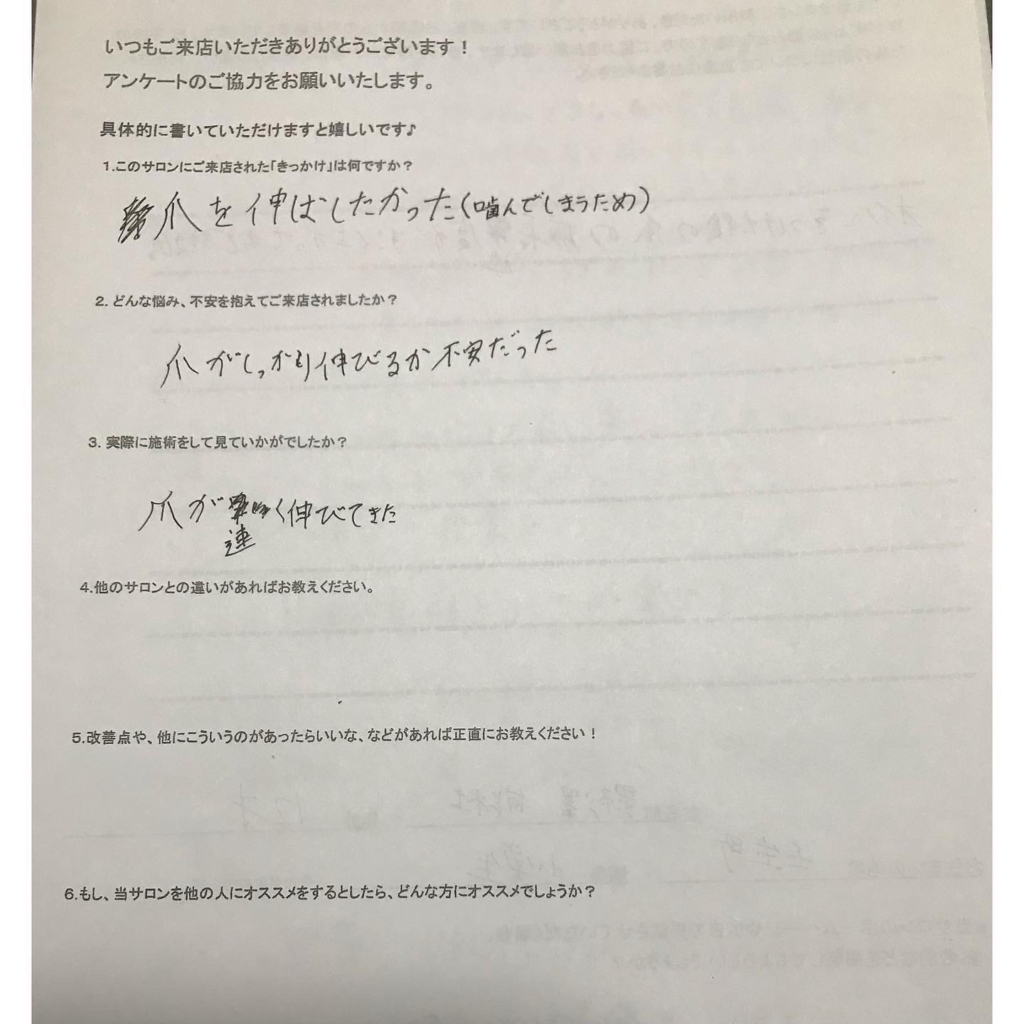 いつもご来店いただきありがとうございます！
アンケートのご協力をお願いいたします。
具体的に書いていただけますと嬉しいです♪
1.このサロンにご来店された「きっかけ」は何ですか？
爪を伸ばしたかった(噛んでしまうため)
2. どんな悩み、不安を抱えてご来店されましたか？
爪がしっかり伸びるか不安だった
3. 実際に施術をして見ていかがでしたか？
爪が く伸びてきた
速
4.他のサロンとの違いがあればお教えください。
5.改善点や、他にこういうのがあったらいいな、などがあれば正直にお教えください！
6.もし、当サロンを他の人にオススメをするとしたら、どんな方にオススメでしょうか？